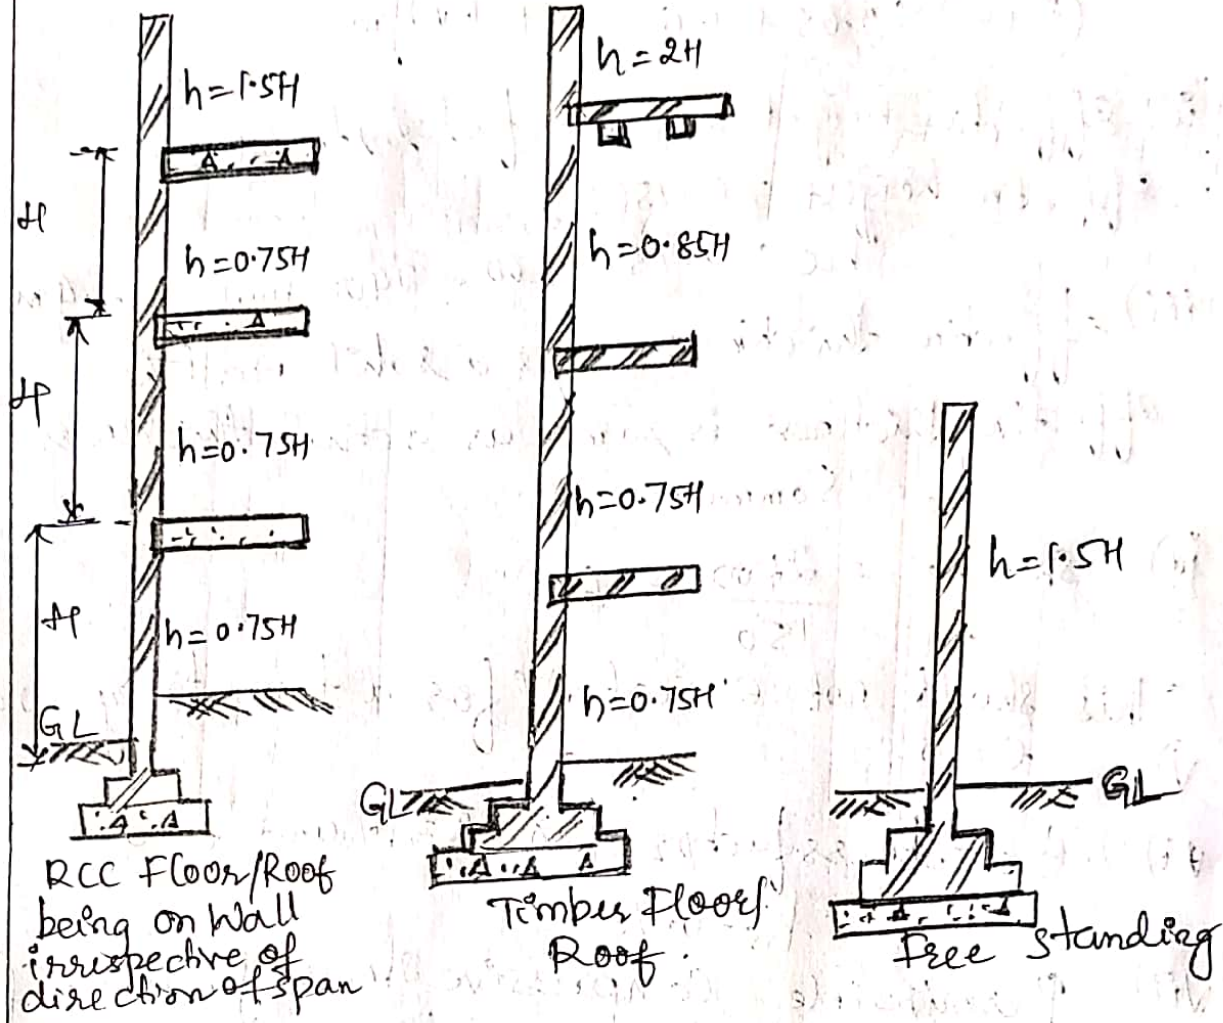 h=1.5H
H
h=0.75H
H
h=0.75H
H
h=0.75H
GL
RCC Floor/Roof
being on Wall
irrespective of
direction of span
h=2H
h=0.85H
h=0.75H
h=0.75H
GL
Timber Floor/
Roof.
h=1.5H
GL
Free standing